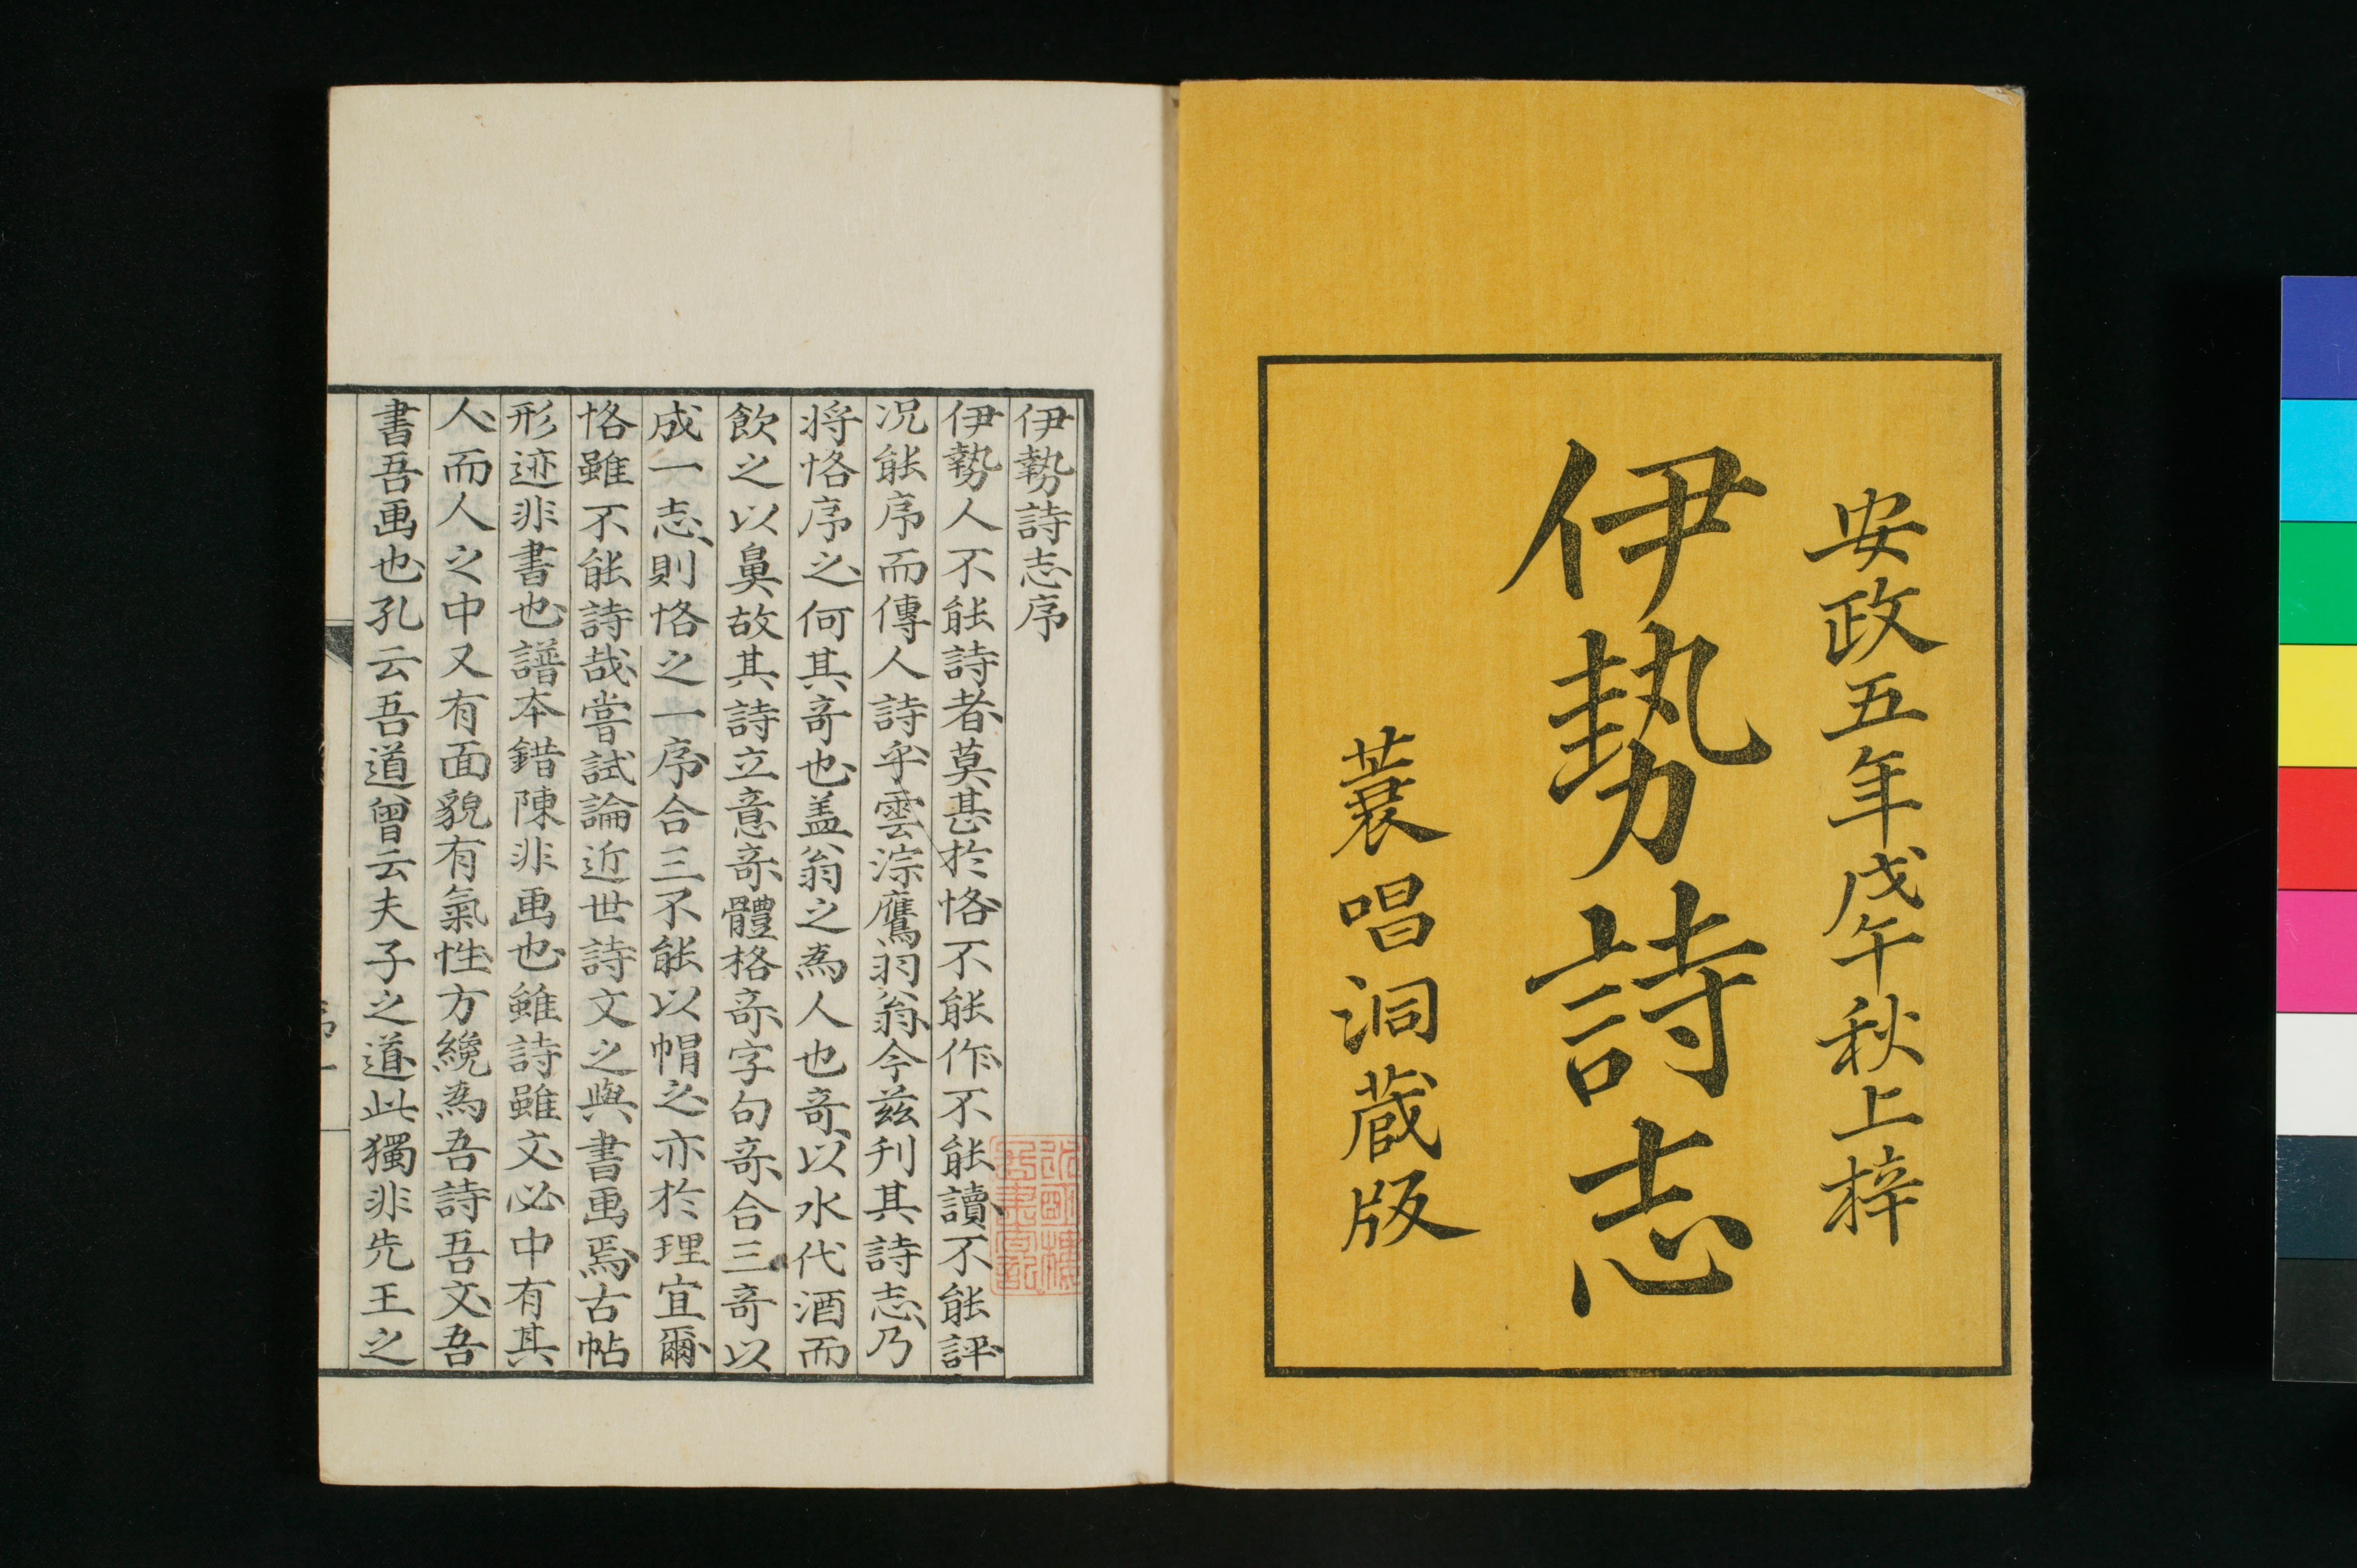 安政五年戊午秋上梓
伊勢詩志
蓑唱洞蔵版
伊勢詩志序
伊勢人不能詩者莫甚於恪不能作不能讀不能評
况能序而傳人詩乎雲淙鷹羽翁今兹刋其詩志乃
将恪序之何其竒也盖翁之為人也竒以水代酒而
飲之以鼻故其詩立意竒體格竒字句竒合三竒以
成一志則恪之一序合三不能以帽之亦於理宜爾
恪雖不能詩哉嘗試論近世詩文之與書画焉古帖
形迹非書也譜本錯陳非画也雖詩雖文必中有其
人而人之中又有面貌有氣性方纔為吾詩吾文吾
書吾画也孔云吾道曾云夫子之道此獨非先王之